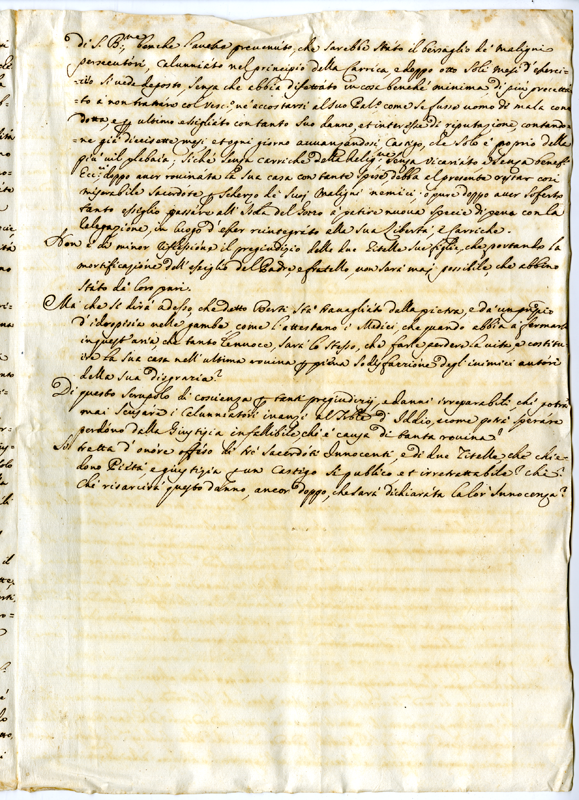 di S. B.ne benche l'aveße prevenuto, che sarebbe stato il bersaglio de' maligni
persecutori, Calunniato nel principio della Carrica, e doppo otto soli mesi d'eserci-
-tio si vede deposto, senza che abbia difettato in cose benché minima di più precetta-
-to a non trattare col Vesc.o né accostarsi al suo Pal.o come se fusse uomo di mala con-
dotta, e per ultimo essigliato con tanto suo danno, et interesse di riputazione, contando-
ne già diecisette mesi et ogni giorno avvanzandosi, Castigo, che solo è proprio della
più vil plebaia; Siche senza carriche della senza vicariato e senza
doppo aver rovinata la sua casa con tante spese debba al presente restar così
miserabile Sacerdote per scherzo de' suoi maligni nemici, o pure doppo aver sofferto
tanto essiglio passare all' a patire nuova specie di pena con la
in luogo d'esser reintegrato alla sua libertà, e Carriche.
Non è di minor il pregiudizio delle due Zitelle sue che portando la
mortificazione dell'essiglio del Padre e fratello, non sarà mai possibile, che abbino
stato da loro pari.
Ma che si dirà adesso, che detto Berti stà travagliato dalla pietra, e da un prin.pio
d'idropisia nelle gambe come l'attestano i Medici, che quando abbia a fermarsi
in quest'aria che tanto l'annoce, sarà lo stesso, che farle perdere la vita, e costitu-
ire la sua casa nell'ultima rovina per piena sodisfazione degl'inimici autori
della sua disgrazia?
Di questo scrupolo di coscienza per tanti pregiudizij, e danni irreparabili, chi potrà
mai scusare i Calunniatori inanzi al Trib.le d'Iddio, e come potrà sperare
perdono dalla Giustizia infallibile, chi è causa di tanta rovina?
Si tratta d'onore offeso di tré Sacerdoti Innocenti, e di due Zitelle, che chie-
dono Pietà, e giustizia un Castigo sì publico et irretrattabile? che?
Chi risarcirà questo danno, ancor doppo, che sarà dichiarata la lor Innocenza?